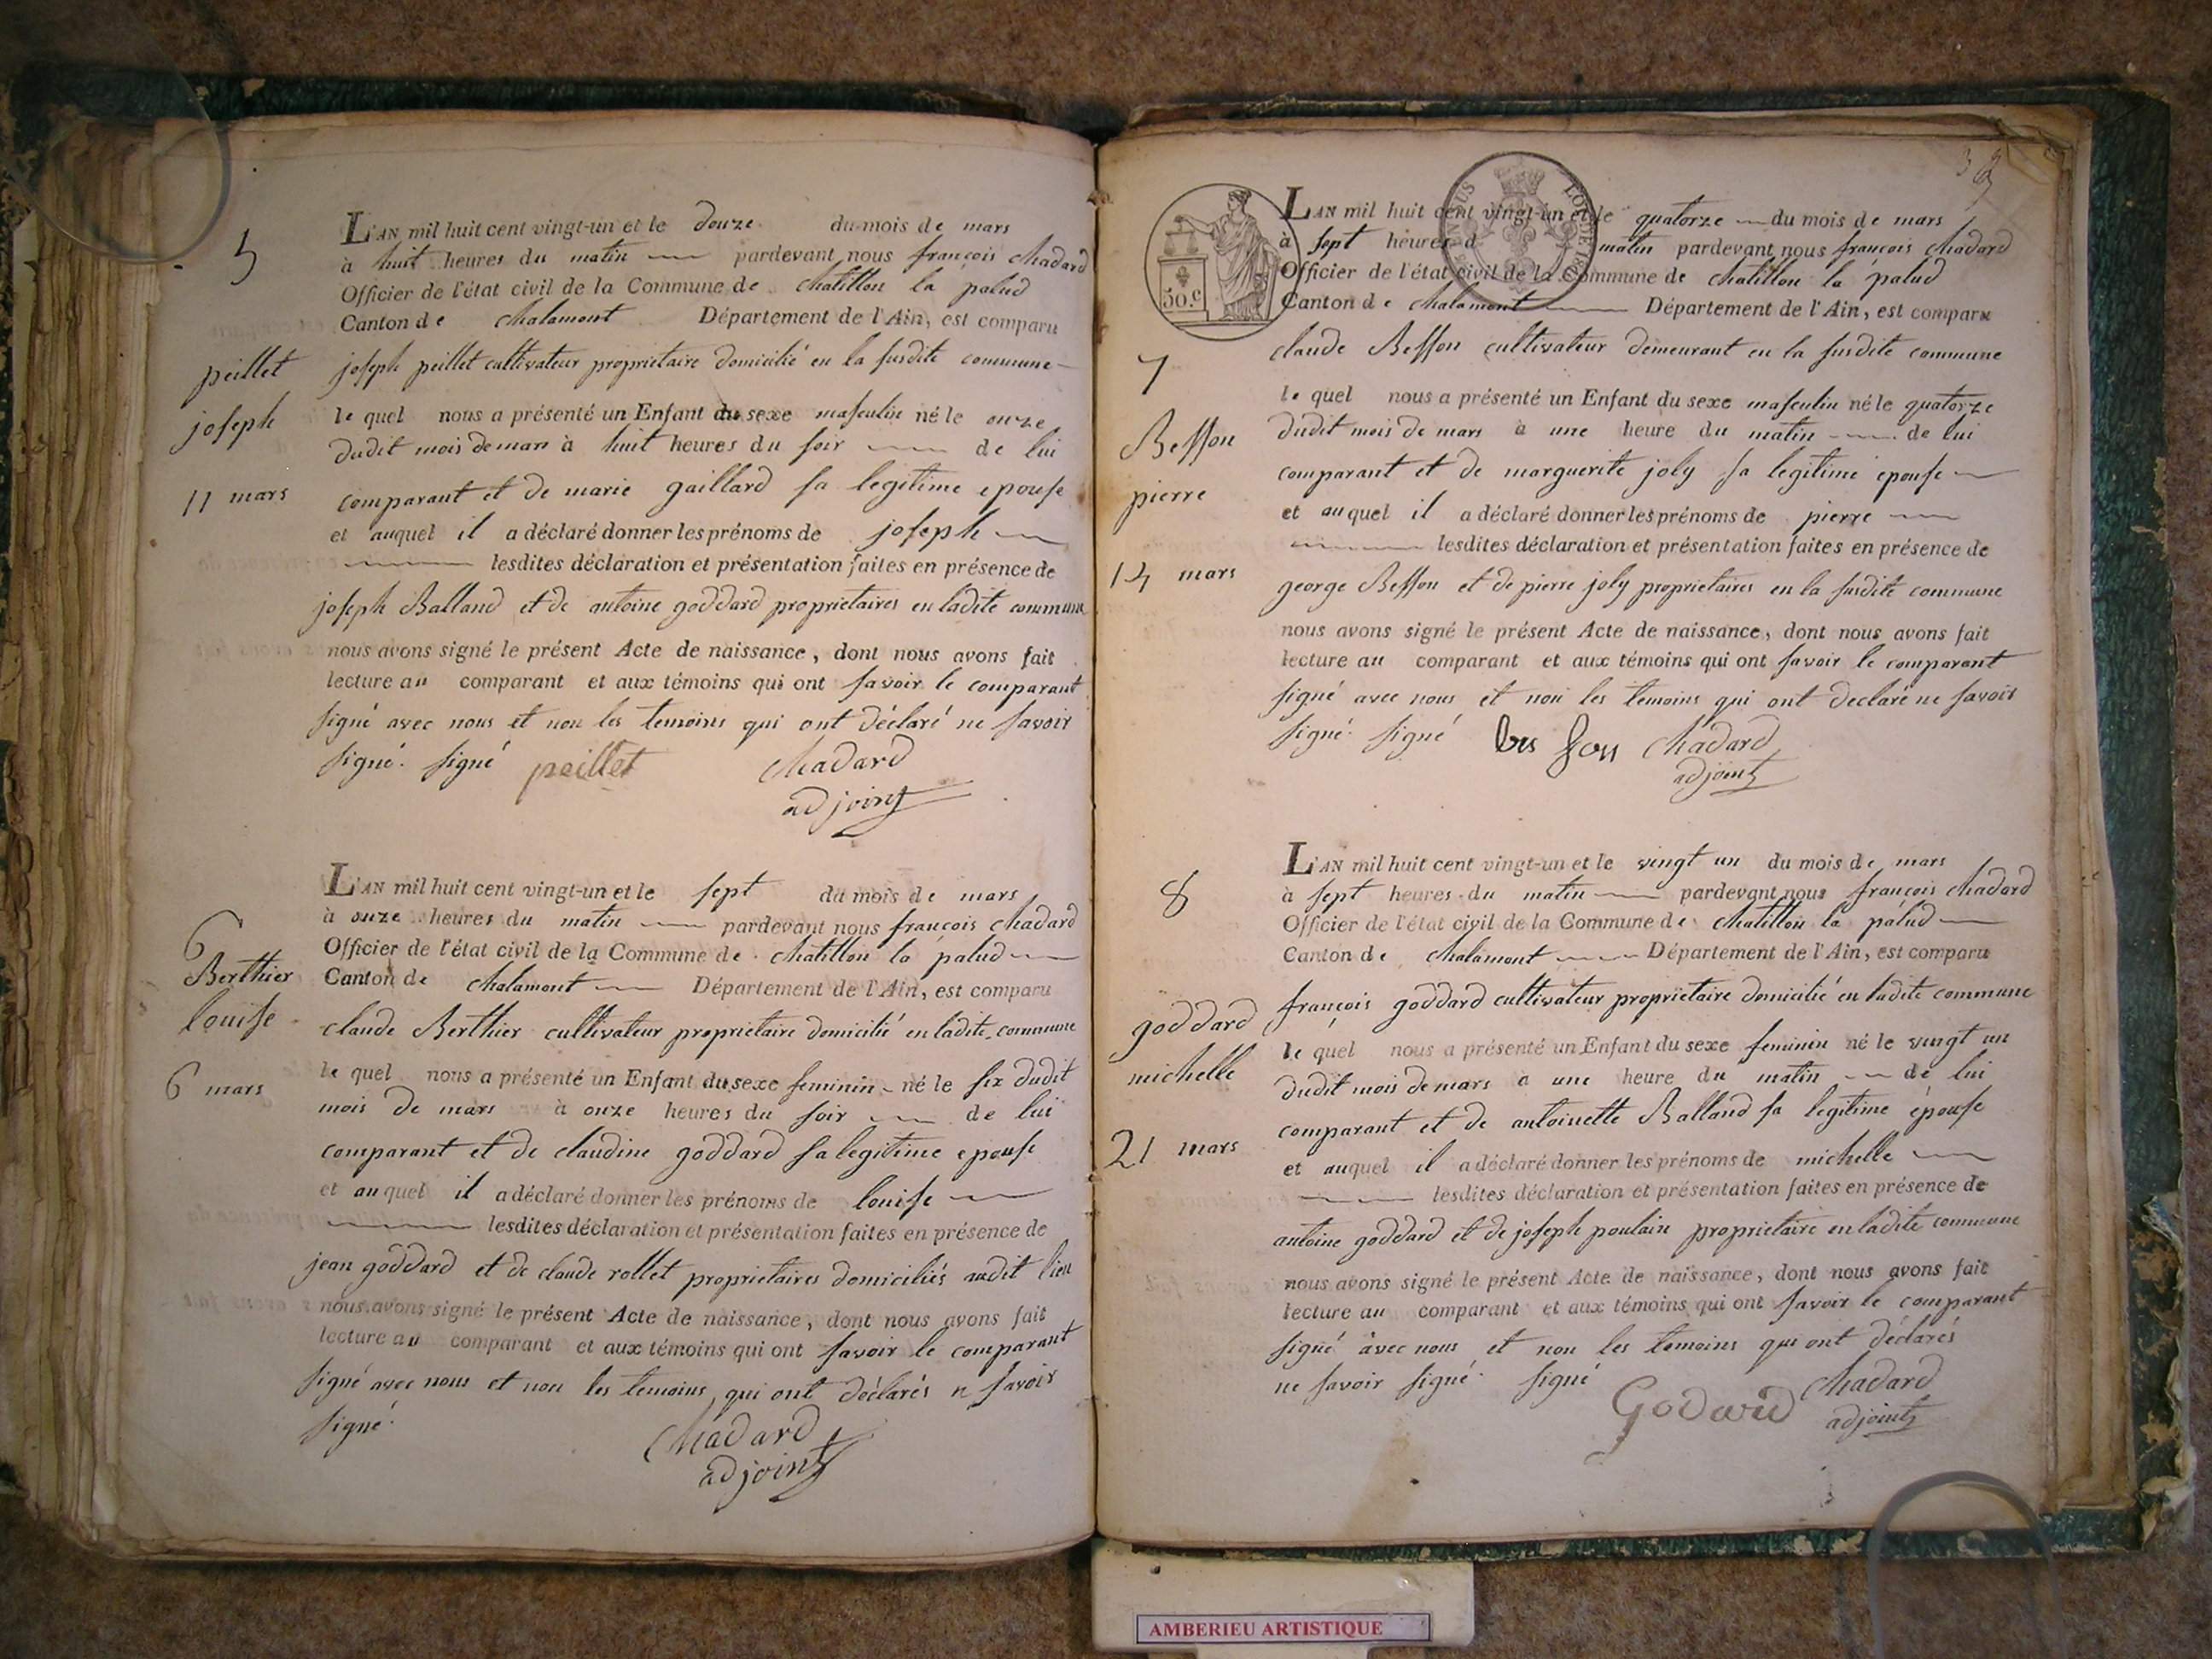 5
peillet
joseph
11 mars
L'AN mil huit cent vingt-un et le douze du mois de mars
à huit heures du matin pardevant nous françois Chadard
Officier de l'état civil de la Commune de chatillon la palud
Canton de chalamont Département de l'Ain, est comparu
joseph peillet cultivateur proprietaire domicilié en la susdite commune
le quel nous a présenté un Enfant du sexe masculin né le onze
dudit mois de mars à huit heures du soir de lui
comparant et de marie gaillard sa legitime epouse
et auquel il a déclaré donner les prénoms de joseph
lesdites déclaration et présentation faites en présence de
joseph Balland et de antoine goddard proprietaires en ladite commune
nous avons signé le présent Acte de naissance, dont nous avons fait
lecture au comparant et aux témoins qui ont savoir le comparant
signé avec nous et non les temoins qui ont déclaré ne savoir
signé. signé peillet Chadard
adjoint
6
Berthier
louise
6 mars
L'AN mil huit cent vingt-un et le sept du mois de mars
à onze heures du matin pardevant nous françois Chadard
Officier de l'état civil de la Commune de chatillon la palud
Canton de chalamont Département de l'Ain, est comparu
claude Berthier cultivateur proprietaire domicilié en ladite commune
le quel nous a présenté un Enfant du sexe feminin né le six dudit
mois de mars à onze heures du soir de lui
comparant et de claudine goddard sa legitime epouse
et auquel il a déclaré donner les prénoms de louise
lesdites déclaration et présentation faites en présence de
jean goddard et de claude rollet proprietaires domiciliés audit lieu
nous avons signé le présent Acte de naissance, dont nous avons fait
lecture au comparant et aux témoins qui ont savoir le comparant
signé avec nous et non les temoins qui ont déclarés n savoir
signé.
Chadard
adjoint
50.c
7
Besson
pierre
14 mars
L'AN mil huit cent vingt-un et le quatorze du mois de mars
à sept heures d matin pardevant nous françois Chadard
Officier de l'état civil de la Commune de chatillon la palud
Canton de chalamont Département de l'Ain, est comparu
claude Besson cultivateur demeurant en la susdite commune
le quel nous a présenté un Enfant du sexe masculin né le quatorze
dudit mois de mars à une heure du matin de lui
comparant et de marguerite joly sa legitime epouse
et auquel il a déclaré donner les prénoms de pierre
lesdites déclaration et présentation faites en présence de
george Besson et de pierre joly proprietaires en la susdite commune
nous avons signé le présent Acte de naissance, dont nous avons fait
lecture au comparant et aux témoins qui ont savoir le comparant
signé avec nous et non les temoins qui ont declaré ne savoir
signé. signé bes son Chadard
adjoint
8
goddard
michelle
21 mars
L'AN mil huit cent vingt-un et le vingt un du mois de mars
à sept heures du matin pardevant nous françois Chadard
Officier de l'état civil de la Commune de chatillon la palud
Canton de chalamont Département de l'Ain, est comparu
françois goddard cultivateur proprietaire domicilié en ladite commune
le quel nous a présenté un Enfant du sexe feminin né le vingt un
dudit mois de mars a une heure du matin de lui
comparant et de antoinette Balland sa legitime épouse
et auquel il a déclaré donner les prénoms de michelle
lesdites déclaration et présentation faites en présence de
antoine goddard et de joseph poulain proprietaire en ladite commune
nous avons signé le présent Acte de naissance, dont nous avons fait
lecture au comparant et aux témoins qui ont savoir le comparant
signé avec nous et non les temoins qui ont déclarés
ne savoir signé. signé
Godard Chadard
adjoint
AMBERIEU ARTISTIQUE